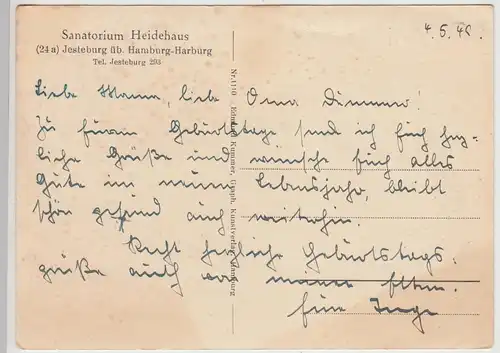 Sanatorium Heidehaus
(24a) Jesteburg üb. Hamburg-Harburg
Tel. Jesteburg 293
Nr. 1110 Edmund Kummer, Graph. Kunstverlag, Hamburg
4.5.48.
Liebe Mama, liebe Oma
Zu Eurem Geburtstage send ich Euch herz-
liche Grüße und wünsche Euch alles
Gute im neuen Lebensjahr, bleibt
schön gesund auch weiterhin.
Recht herzliche Geburtstags-
grüße auch von meinen Eltern.
Eure Inge